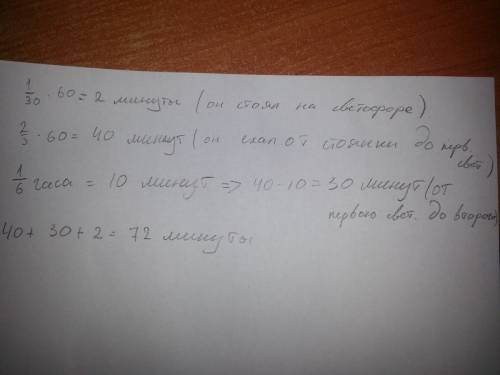 1/30 · 60 = 2 минуты (он стоял на светофоре)
2/3 · 60 = 40 минут (он ехал от стоянки до перв. свет.)
1/6 часа = 10 минут => 40 - 10 = 30 минут (от
первого свет. до второго)
40 + 30 + 2 = 72 минуты